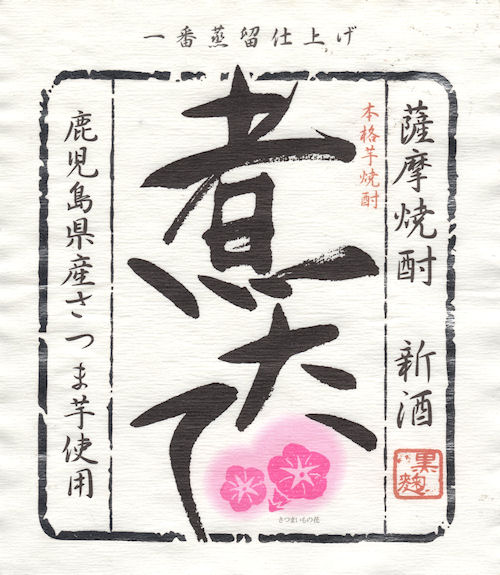 一番蒸留仕上げ
薩摩焼酎 新酒
黒麹
本格芋焼酎
煮大て
さつまいもの花
鹿児島県産さつま芋使用